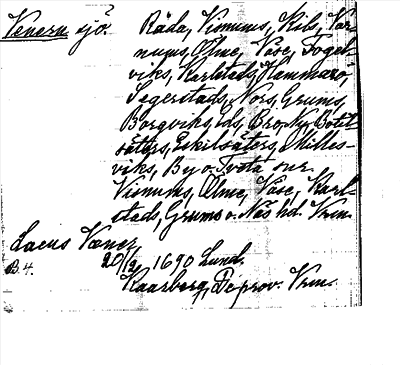 Venern sjö. Råda, Visnums, Kils, Var-
nums, Ölme, Väse, Fogel-
viks, Karlstads, Hammarö,
Segerstads, Nors, Grums,
Borgviks, Eds, Bro, Ny, Botil-
säters, Eskilsäters, Milles-
viks, By o. Tveta snr.
Visnums, Ölme, Väse, Karl-
stads, Grums o. Näs hd. Vrm.
Lacus Væner,
B.4. 20/12 1690 Lund.
De prov. Vrm.